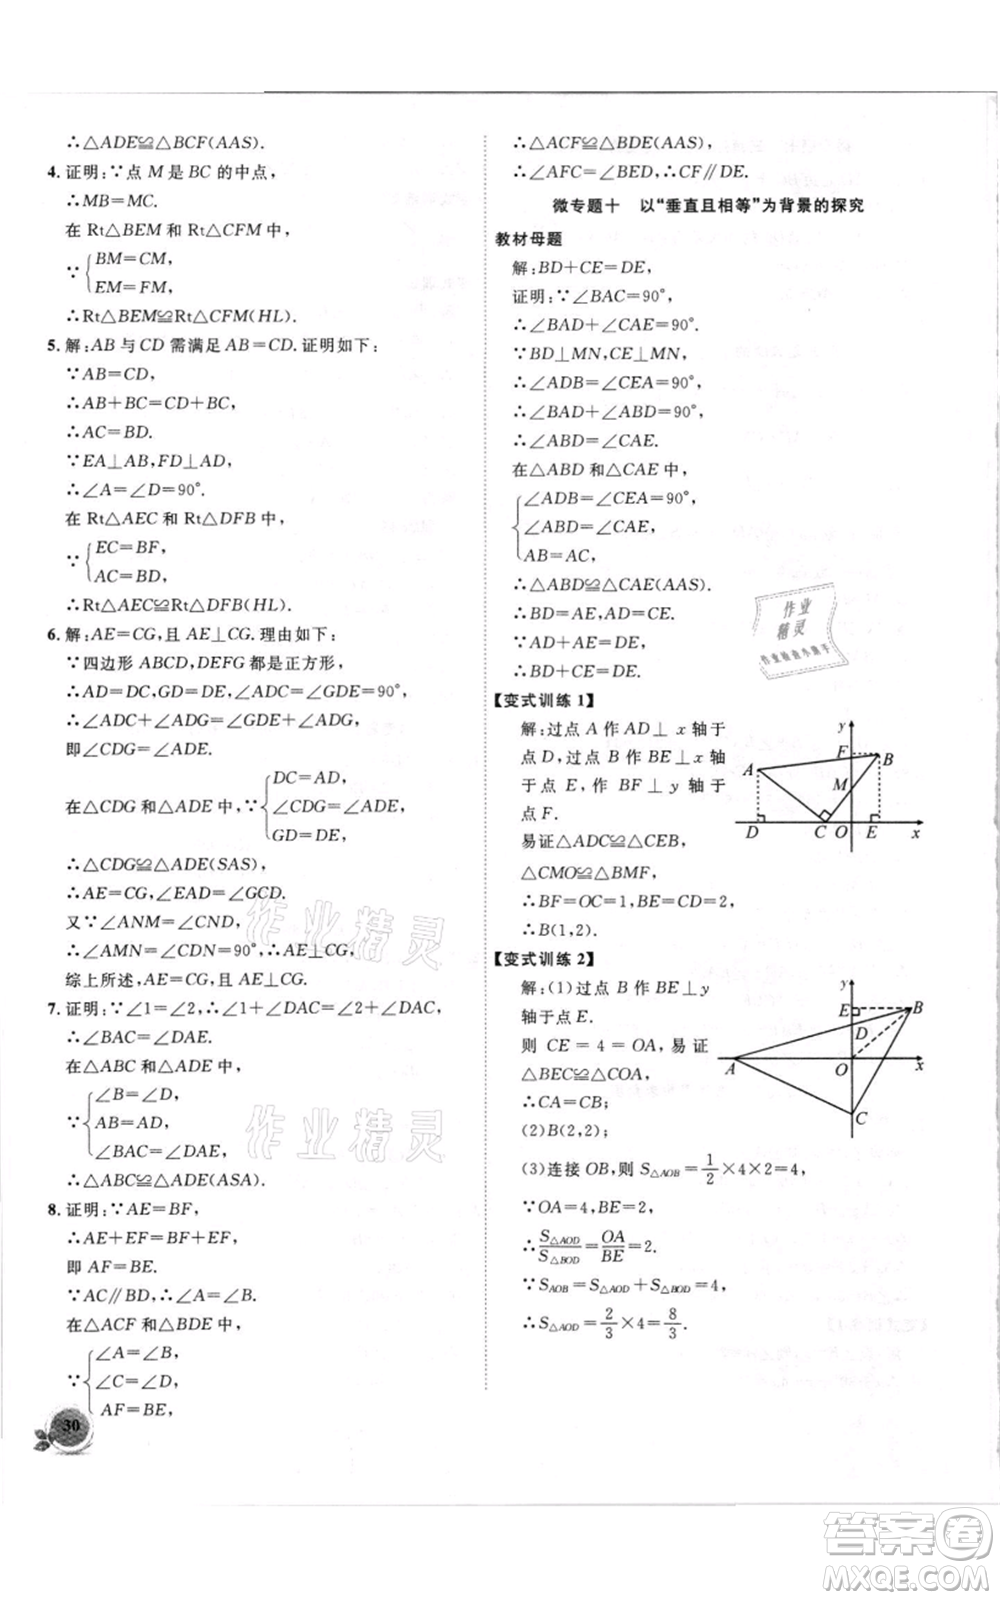 ∴△ADE≌△BCF(AAS).
4. 证明:∵点 M 是 BC 的中点,
∴MB=MC.
在 Rt△BEM 和 Rt△CFM 中,
∵{BM=CM,
EM=FM,
∴Rt△BEM≌Rt△CFM(HL).
5. 解:AB 与 CD 需满足 AB=CD.证明如下:
∵AB=CD,
∴AB+BC=CD+BC,
∴AC=BD.
∵EA⊥AB,FD⊥AD,
∴∠A=∠D=90°.
在 Rt△AEC 和 Rt△DFB 中,
∵{EC=BF,
AC=BD,
∴Rt△AEC≌Rt△DFB(HL).
6. 解:AE=CG,且 AE⊥CG.理由如下:
∵四边形 ABCD,DEFG 都是正方形,
∴AD=DC,GD=DE,∠ADC=90°,
∴∠ADC+∠ADG=∠GDE+∠ADG,
即∠CDG=∠ADE.
在△CDG 和△ADE 中,∵{DC=AD,
∠CDG=∠ADE,
GD=DE,
∴△CDG≌△ADE(SAS).
∴AE=CG,∠EAD=∠GCD.
又∵∠ANM=∠CND,
∴∠AMN=∠CDN=90°,∴AE⊥CG.
综上所述,AE=CG,且 AE⊥CG.
7. 证明:∵∠1=∠2,∴∠1+∠DAC=∠2+∠DAC,
∴∠BAC=∠DAE.
在△ABC 和△ADE 中,
∵{∠B=∠D,
AB=AD,
∠BAC=∠DAE,
∴△ABC≌△ADE(ASA).
8. 证明:∵AE=BF,
∴AE+EF=BF+EF,
即 AF=BE.
∵AC∥BD,∴∠A=∠B.
在△ACF 和△BDE 中,
∵{∠A=∠B,
∠C=∠D,
AF=BE,
30
∴△ACF≌△BDE(AAS),
∴∠AFC=∠BED,∴CF∥DE.
微专题十 以“垂直且相等”为背景的探究
教材母题
解:BD+CE=DE,
证明:∵∠BAC=90°,
∴∠BAD+∠CAE=90°.
∵BD⊥MN,CE⊥MN,
∴∠ADB=∠CEA=90°.
∴∠BAD+∠ABD=90°.
∴∠ABD=∠CAE.
在△ABD 和△CAE 中,
{∠ADB=∠CEA=90°,
∠ABD=∠CAE,
AB=AC,
∴△ABD≌△CAE(AAS).
∴BD=AE,AD=CE.
∵AD+AE=DE,
∴BD+CE=DE.
【变式训练 1】
解:过点 A 作 AD⊥x 轴于
点 D,过点 B 作 BE⊥x 轴
于点 E,作 BF⊥y 轴于
点 F.
易证△ADC≌△CEB,
△CMO≌△BMF,
∴BF=OC=1,BE=CD=2,
∴B(1,2).
y
F
B
A
M
D
C
O
E
x
【变式训练 2】
解:(1)过点 B 作 BE⊥y
轴于点 E.
则 CE=4=OA,易证
△BEC≌△COA,
∴CA=CB;
(2)B(2,2);
y
E
B
D
A
O
x
C
(3)连接 OB,则 S△AOB=1/2×4×2=4,
∵OA=4,BE=2,
∴S△AOD/S△BOD=OA/BE=2.
∵SAOB=S△AOD+S△BOD=4,
∴S△AOD=2/3×4=8/3.
作业
精灵
作业检查小助手
作业精灵
作业精灵
答案卷
MXQE.COM